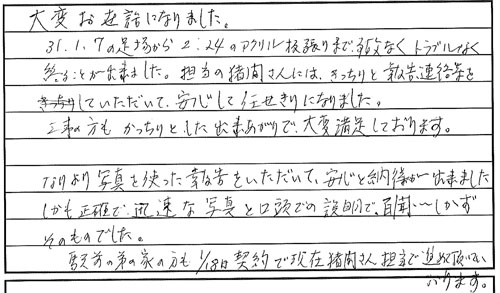 大変お世話になりました。
31.1.7の足場から2.24のアクリル板張りまで、事故なくトラブルなく
終ることが出来ました。担当の猪間さんには、きっちりと報告連絡等を
していただいて、安心して任せきりになりました。
工事の方もかっちりとした出来あがりで、大変満足しております。
なにより写真を使った報告をいただいて、安心と納得が出来ました
しかも正確で、迅速な写真と口頭での説明で、百聞〜しかず
そのものでした。
駅前の弟の家の方も1/18日契約で現在猪間さん担当で進めて頂いて
いります。